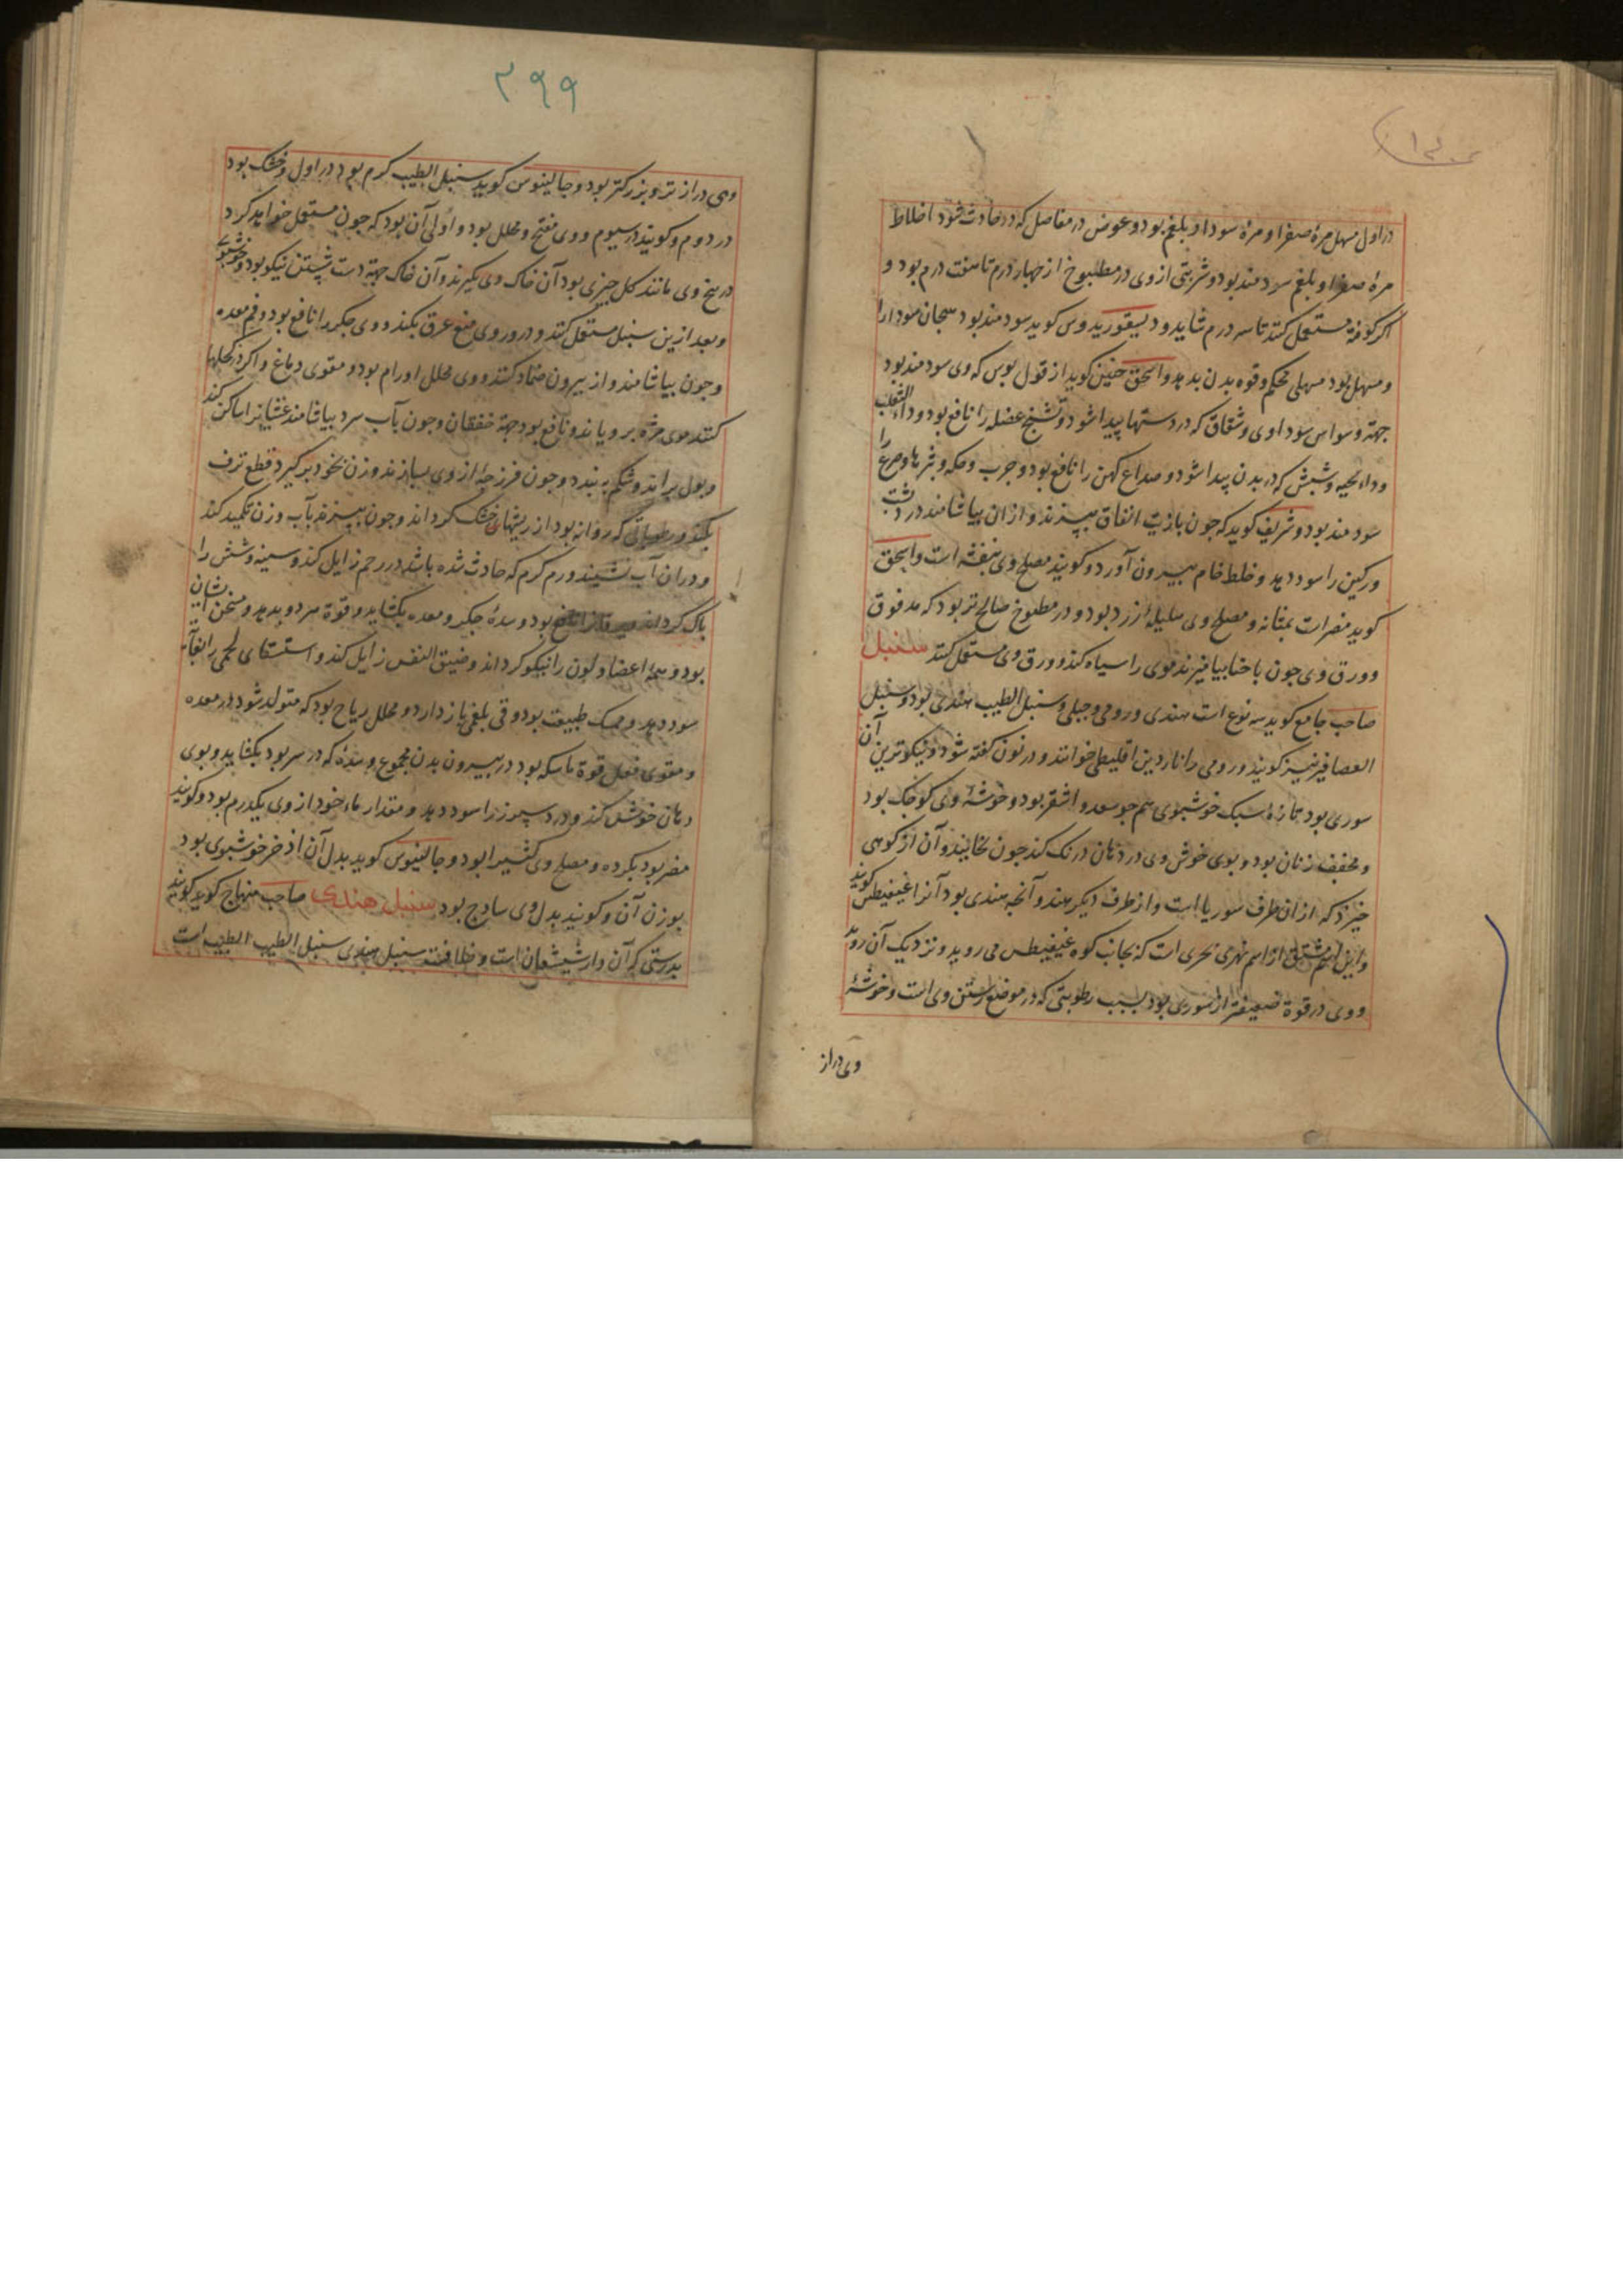 در اول مسهل مرهٔ صفرا و مرهٔ سودا و بلغم بود و غوص در مفاصل که در حادث شود اخلاط
مرهٔ صفرا و بلغم سودمند بود و شربتی از وی در مطبوخ از چهار درم تا هفت درم بود و
اکر کوفته مستعمل کنند تا سه درم شاید و دیسقوریدوس کوید سودمند بود سودا را
و مسهل بود مسهلی محکم و قوه بدن بدهد و اسحق حنین کوید از قول بولس که وی سودمند بود
جهة وسواس سوداوی و شقاق که در دستها پیدا شود و تشنج عضله را نافع بود و داء الثعلب
و داء الحیه و شپش که در بدن پیدا شود و صداع کهن را نافع بود و جرب و حکه و بثرها و صرع را
سودمند بود و شریف کوید که چون بازیت انفاق بپزند و از آن بیاشامند درد پشت
ورکین را سود دهد و خلط خام بیرون آورد و کویند مصلح وی بنفشه است و اسحق
کوید مضرات بمثانه و مصلح وی هلیلهٔ زرد بود و در مطبوخ صالح تر بود که مدقوق
و ورق وی چون با حنا بیامیزند موی را سیاه کند و ورق وی مستعمل کنند سنبل
صاحب جامع کوید سه نوع است هندی و رومی و جبلی و سنبل الطیب هندی بود و سنبل
العصافیر نیز کویند و رومی را ناردین اقلیطی خوانند و در نون کفته شود و نیکوترین آن
سوری بود تازه سبک خوشبوی هم چو سعد و اشقر بود و خوشهٔ وی کوچک بود
و مجفف زبان بود و بوی خوش وی در دهان درنک کند چون بخایند و آن از کوهی
خیزد که از آن طرف سوریا است و از طرف دیکر هند و آنچه هندی بود آنرا غنغیطس کویند
و این اسم مشتق از اسم نهری است که بجانب کوه غنغیطس می روید و نزدیک آن روید
و وی در قوة ضعیفتر از سوری بود بسبب رطوبتی که در موضع رستن وی است و خوشهٔ
وی دراز
۲۹۹
وی دراز تر و بزرکتر بود و جالینوس کوید سنبل الطیب کرم بود در اول و خشک بود
در دوم و کویند در سیوم و وی مفتح و محلل بود و اولی آن بود که چون مستعمل خواهد کرد
در بیخ وی مانند کل چیزی بود آن خاک وی بکیرند و آن خاک جهة دست شستن نیکو بود و خوشبوی
و بعد ازین سنبل مستعمل کنند و ذرور وی منع عرق بکند و وی جکر را نافع بود و فم معده
و چون بیاشامند و از بیرون ضماد کنند و وی محلل اورام بود و مقوی دماغ و اکر در کحلها
کنند موی مژه برویاند و نافع بود جهة خفقان و چون بآب سرد بیاشامند غثیانرا ساکن کند
و بول براند و شکم ببندد و چون فرزجهٔ از وی بسازند و زن بخود برکیرد قطع نزف
بکند و رطوباتی که روانه بود از ریشهای خشک کرداند و چون بپزند بآب و زن تکمید کند
و در آن آب نشیند ورم کرم که حادث شده باشد در رحم زایل کند و سینه و شش را
پاک کرداند و یرقانرا نافع بود و سدهٔ جکر و معده بکشاید و قوة هر دو بدهد و مسخن ایشان
بود و همهٔ اعضا و لون را نیکو کرداند و ضیق النفس زایل کند و استسقای لحمی را بغایت
سود دهد و ممسک طبیعت بود و قی بلغمی باز دارد و محلل ریاح بود که متولد شود در معده
و مقوی فعل قوة ماسکه بود در بیرون بدن مجموع و سدهٔ که در سر بود بکشاید و بوی
دهان خوش کند و درد سپرز را سود دهد و مقدار ماخوذ از وی یکدرم بود و کویند
مضر بود بکرده و مصلح وی کثیرا بود و جالینوس کوید بدل آن اذخر خوشبوی بود
بوزن آن و کویند بدل وی سادج بود سنبل هندی صاحب منهاج کوید کویند
بدرستی که آن دارشیشعان است و سنبل هندی سنبل الطیب است